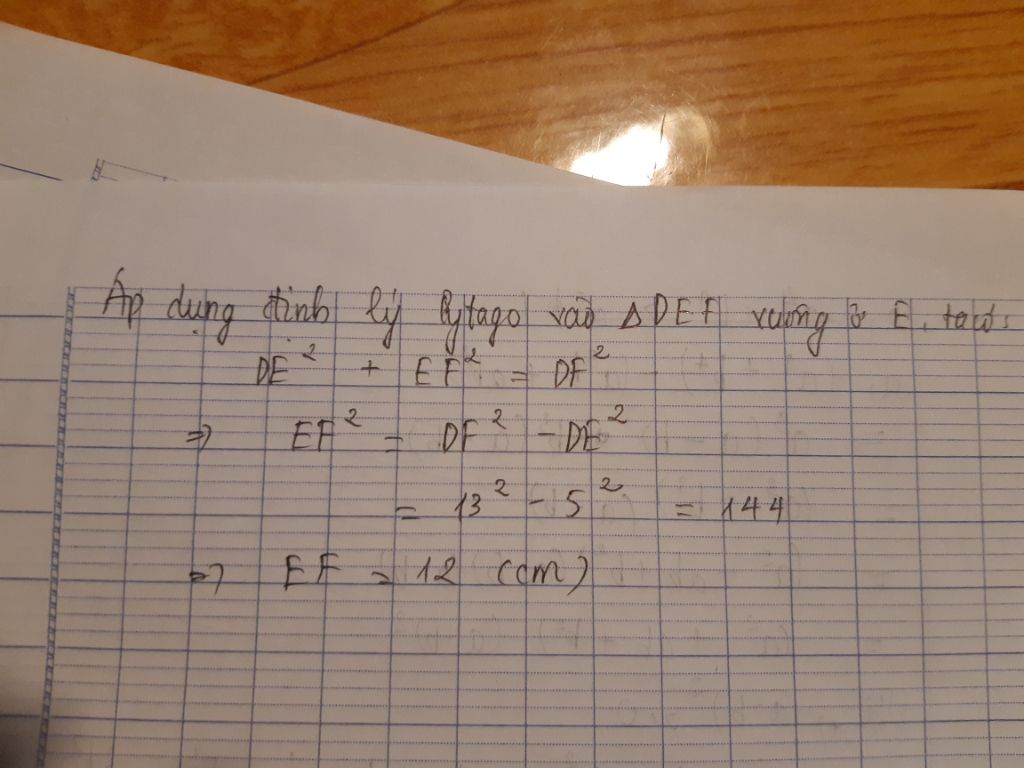 Áp dụng định lý Pytago vào Δ DEF vuông ở E, ta có:
DE² + EF² = DF²
⇒ EF² = DF² - DE²
= 13² - 5² = 144
⇒ EF = 12 (cm)